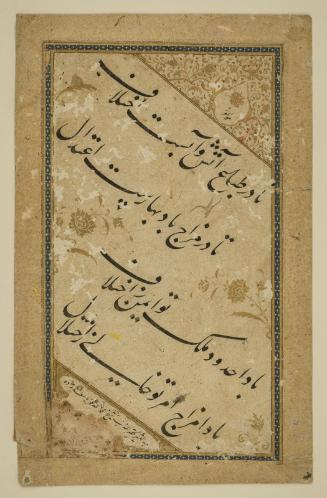 تا در طبایع آتش و آبست اختلاف
تا در مزاج باد بهاریست اعتدال
بادا حدود ملک تو ایمن ز اختلاف
بادا مزاج عمر تو خالی ز اختلال